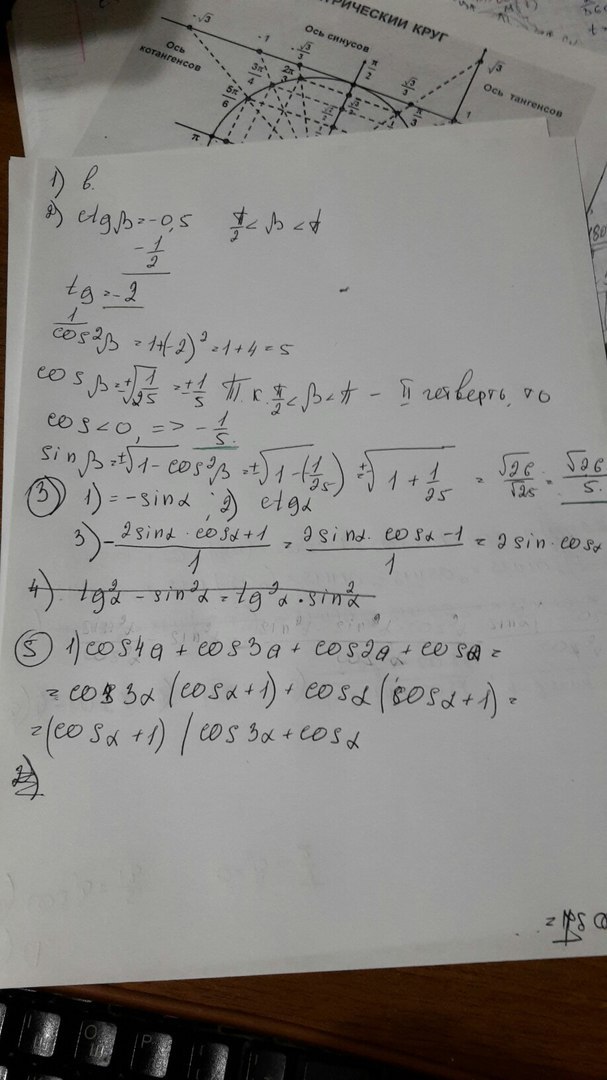 -√3
РИЧЕСКИЙ КРУГ
Ось синусов
Ось котангенсов
-1
-√3/3
π/2
√3/3
√3
Ось тангенсов
3π/4
2π/3
5π/6
π
π/3
1
1) в.
2) ctgβ=-0,5 π/2<β<π
-1/2
tg=-2
1/cos²β=1+(-2)²=1+4=5
cosβ=±√1/25=±1/5 Т.к. π/2<β<π - II четверть, то
cos<0, => -1/5.
sinβ=±√1-cos²β=±√1-(1/25)=±√1+1/25=√26/√25=√26/5.
③ 1) =-sinα; 2) ctgα
3) -2sinα·cosα+1/1=2sinα·cosα-1/1=2sin·cosα
4). tg²α-sin²α=tg²α·sin²α
⑤ 1) cos4α+cos3α+cos2α+cosα=
=cos3α(cosα+1)+cosα(cosα+1)=
=(cosα+1)(cos3α+cosα
2)